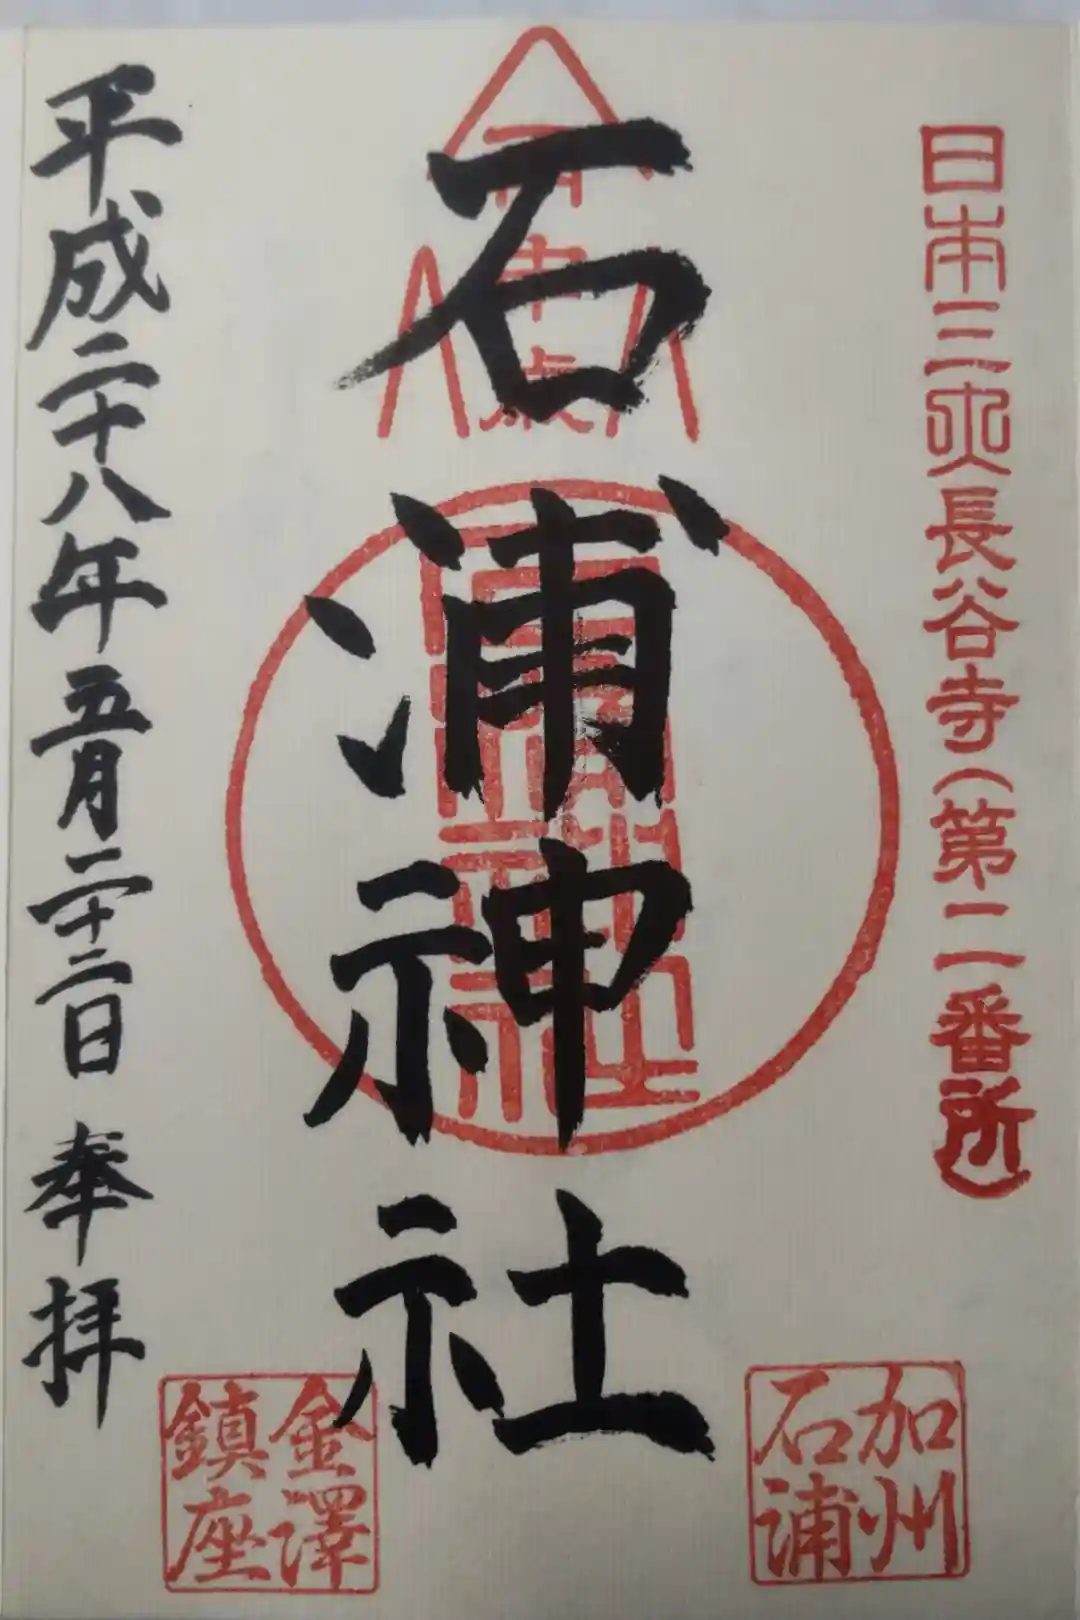 日本三大長谷寺(第二番所)
加州
石浦
丙申歳
石浦神社
金澤
鎮座
平成二十八年五月二十二日 奉拝